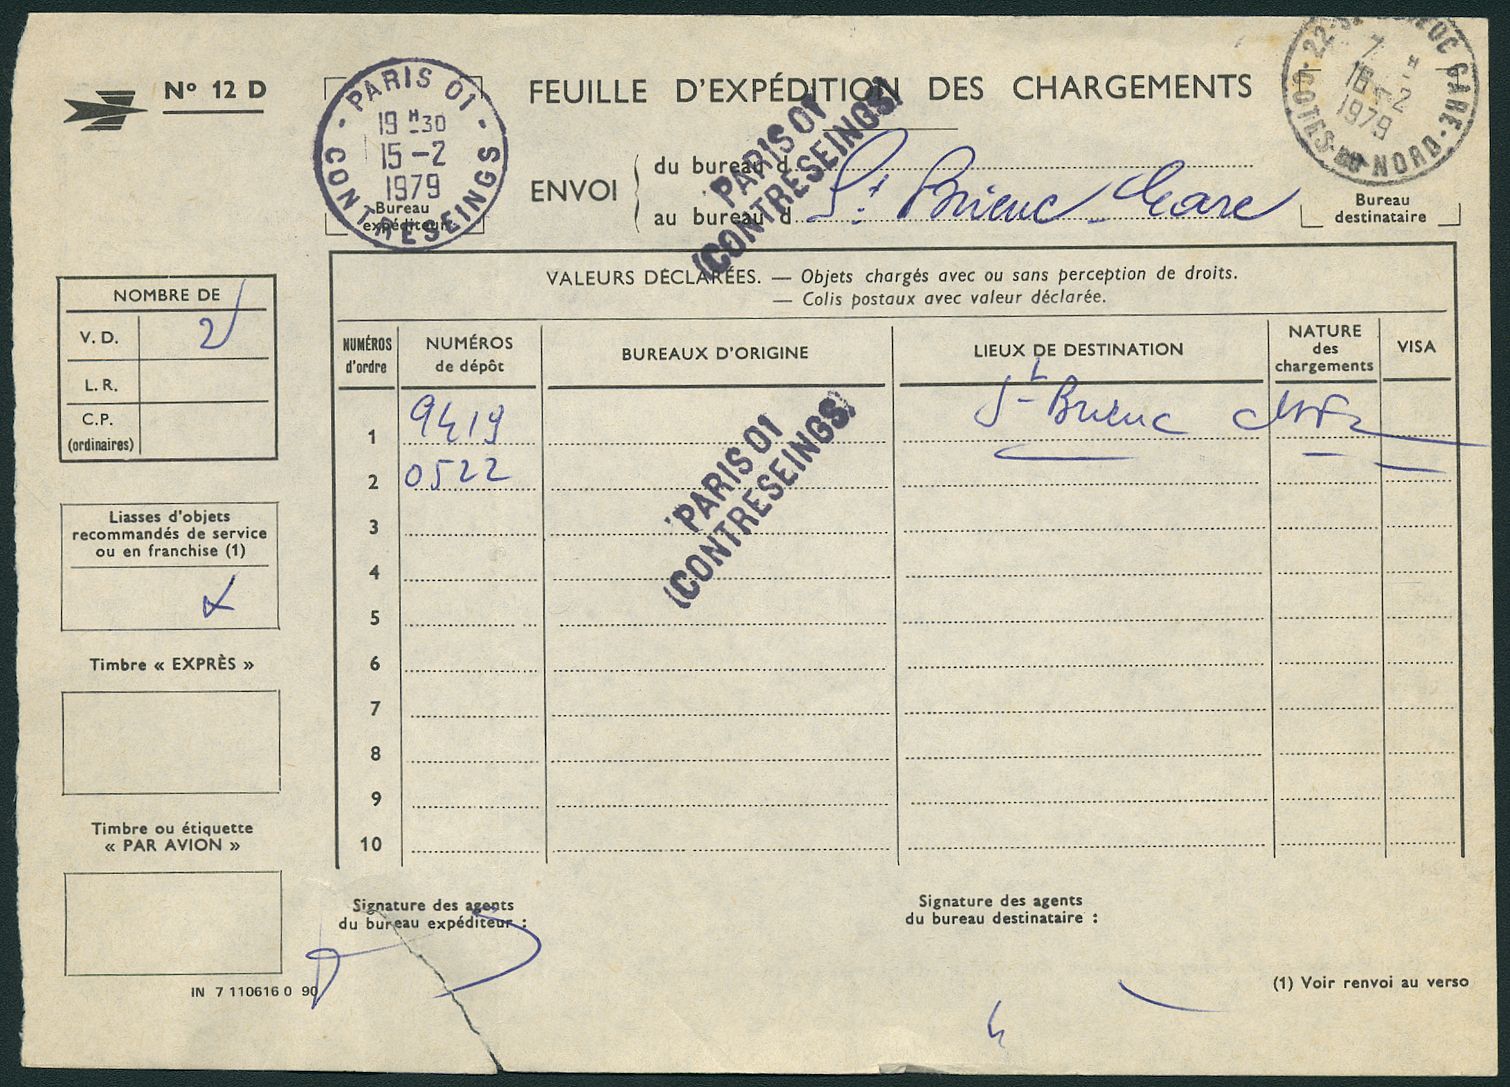 Nº 12 D
PARIS 01
19 H 30
15 - 2
1979
CONTRESEINGS
Bureau
expéditeur
FEUILLE D'EXPÉDITION DES CHARGEMENTS
ENVOI
du bureau d
au bureau d St Brieuc - Gare
PARIS 01
(CONTRESEINGS)
22 - ST BRIEUC GARE
7 H
16 - 2
1979
COTES-DU-NORD
Bureau
destinataire
NOMBRE DE
V. D. 2
L. R.
C.P.
(ordinaires)
Liasses d'objets
recommandés de service
ou en franchise (1)
Timbre « EXPRÈS »
Timbre ou étiquette
« PAR AVION »
IN 7 110616 0 90
VALEURS DÉCLARÉES. — Objets chargés avec ou sans perception de droits.
— Colis postaux avec valeur déclarée.
NUMÉROS
d'ordre
NUMÉROS
de dépôt
BUREAUX D'ORIGINE
LIEUX DE DESTINATION
NATURE
des
chargements
VISA
1 9419 St Brieuc
2 0522
3
4
5
6
7
8
9
10
PARIS 01
(CONTRESEINGS)
Signature des agents
du bureau expéditeur :
Signature des agents
du bureau destinataire :
(1) Voir renvoi au verso